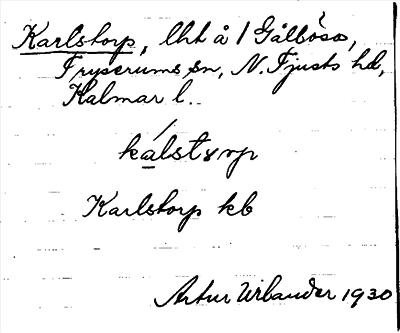 Karlstorp, lht å 1 Gålbösa,
Fryserums sn, N. Tjusts hd,
Kalmar l.
kálstorp
Karlstorp kb
Artur Urbander 1930